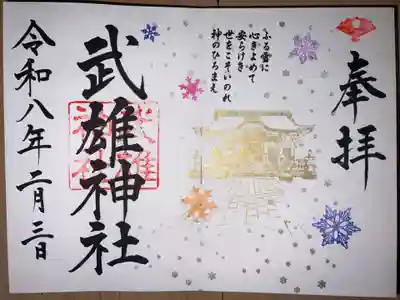 奉拝
ふる雪に
心きよめて
安らけき
世をこそいのれ
神のひろまえ
武雄神社
令和八年二月三日